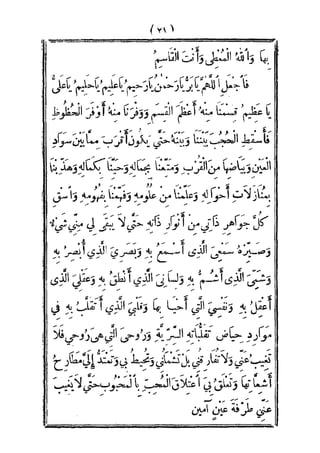 (٢١)
بِهَا وَاللهُ الْمُعْطِى وَأَنْتَ الْقَاسِمُ
فَاَجْعَلِ اللّٰهُمَّ يَابَرُّ يَارَحْمٰنُ يَارَحِيمُ يَاعَلِيمُ يَاحَلِيمُ يَاعَلِىُّ
يَا عَظِيمُ قِسْمَنَا مِنْهُ أَعْظَمَ الْقِسَمِ وَوَفِّرْنَا مِنْهُ أَوْفَرَ الْحُظُوظِ
فَأَسْقِطِ الْحُجُبَ بَيْنَنَا وَبَيْنَهُ حَتَّى يَكُونَ أَقْرَبَ مِمَّا بَيْنَ سَوَادِ
الْعَيْنِ وَبَيَاضِهَا مِنَ الْقُرْبِ وَمَتِّعْنَا بِجَمَالِهِ وَحَيِّنَا بِكَمَالِهِ وَهَذِّبْنَا
بِمُنَازَلَاتِ أَحْوَالِهِ وَعَلِّمْنَا مِنْ عُلُومِهِ وَفَهِّمْنَا بِفُهُومِهِ وَاسْقِ
كُلَّ جَوَاهِرِ ذَاتِي مِنْ أَنْوَارِ ذَاتِهِ حَتَّى لَا يَبْقَى لِي مِنِّي شَيْءٌ
وَصَيِّرْهُ سَمْعِىَ الَّذِى أَسْمَعُ بِهِ وَبَصَرِيَ الَّذِي أُبْصِرُ بِهِ
وَشَمِّىَ الَّذِى أَشُمُّ بِهِ وَلِسَانِىَ الَّذِي أَنْطِقُ بِهِ وَعَقْلِيَ الَّذِى
أَعْقِلُ بِهِ وَنَفْسِيَ الَّتِي أَحْيَا بِهَا وَقَلْبِيَ الَّذِي أَتَقَلَّبُ بِهِ فِي
مَوَارِدِ حِيَاضِ تَقَلُّبَاتِهِ السِّرِّيَّةِ وَرُوحِىَ الَّتِى هِىَ رُوحِي فَلَا
تَغِيبُ عَنِّي وَلَا تُفَارِقُنِي بَلْ تَشْمَلُنِي وَتُحِيطُ بِي وَتَمْتَدُّ إِلَيَّ مَطَارِحُ
أَشِعَّاتِهَا وَتَعْلَقُ بِيَ اعْتِلَاقَ الْمُحِبِّ بِالْمَحْبُوبِ حَتَّى لَا يَغِيبَ
عَنِّي طَرْفَةَ عَيْنٍ آمين